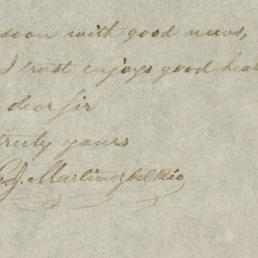 soon with good news,
I trust enjoys good
dear Sir
truly yours